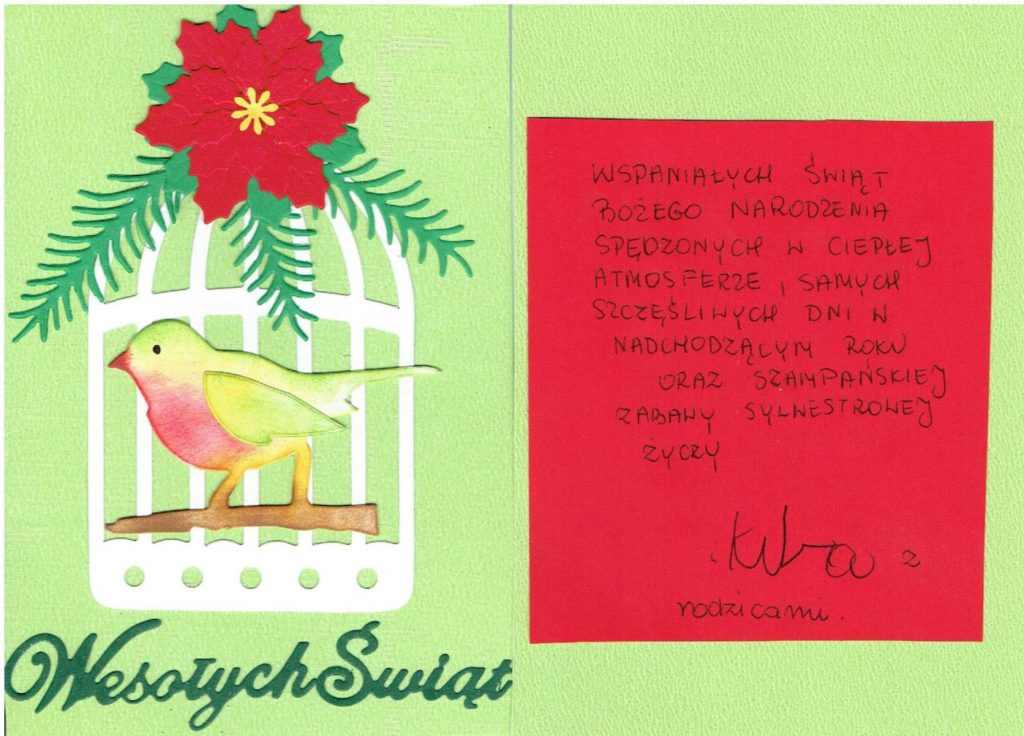 Wesołych Świąt
WSPANIAŁYCH ŚWIĄT
BOŻEGO NARODZENIA
SPĘDZONYCH W CIEPŁEJ
ATMOSFERZE, SAMYCH
SZCZĘŚLIWYCH DNI W
NADCHODZĄCYM ROKU
ORAZ SZAMPAŃSKIEJ
ZABAWY SYLWESTROWEJ
ŻYCZY
z
rodzicami.